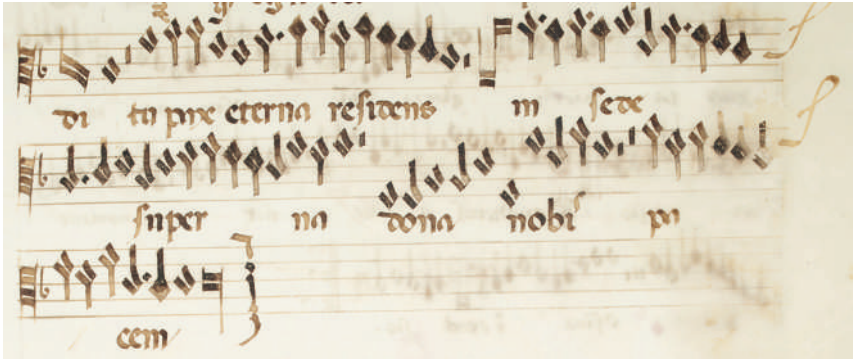 di tu pax eterna residens in sede
super na dona nobis pa
cem